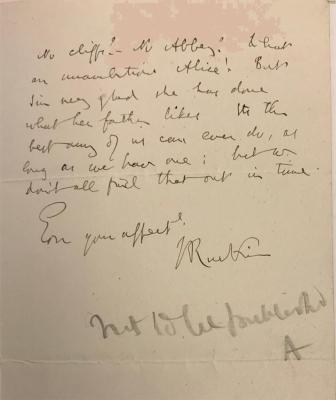 No cliffs? — No Abbey? What
an unambitious Alice! But
I'm very glad she has done
what her father likes. Its the
best any of us can ever do, as
long as we have one: but we
don't all find that out in time.
Ever your affect
JRuskin
Not to be published
A